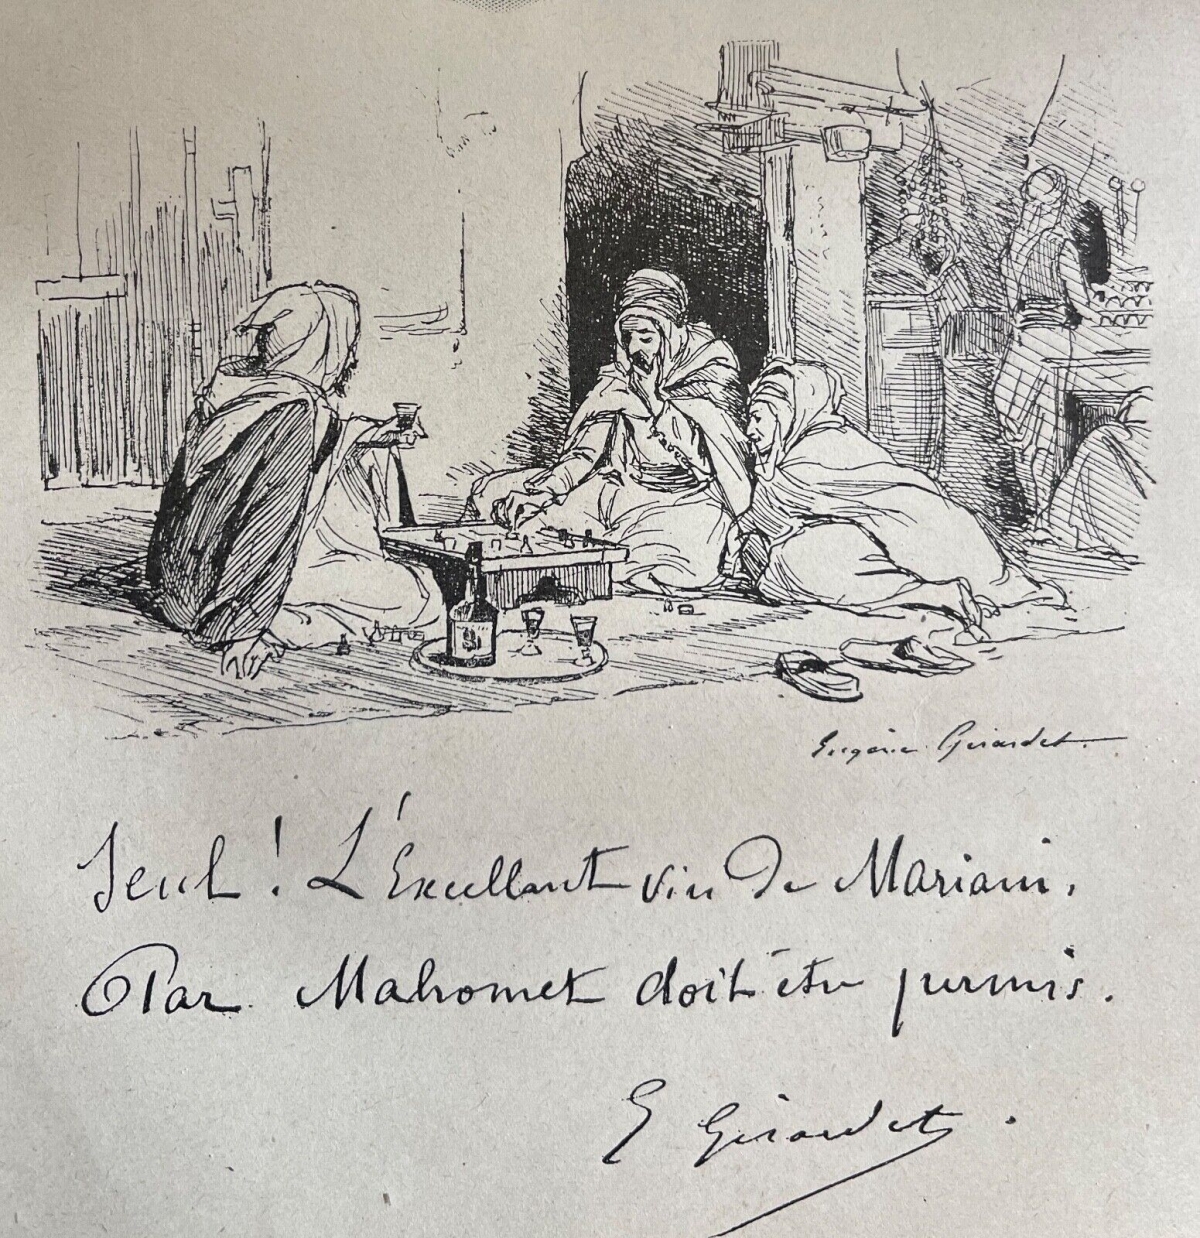 Eugène Girardet
Seul ! L'Excellent vin De Mariani,
Par Mahomet doit être permis.
E Girardet.